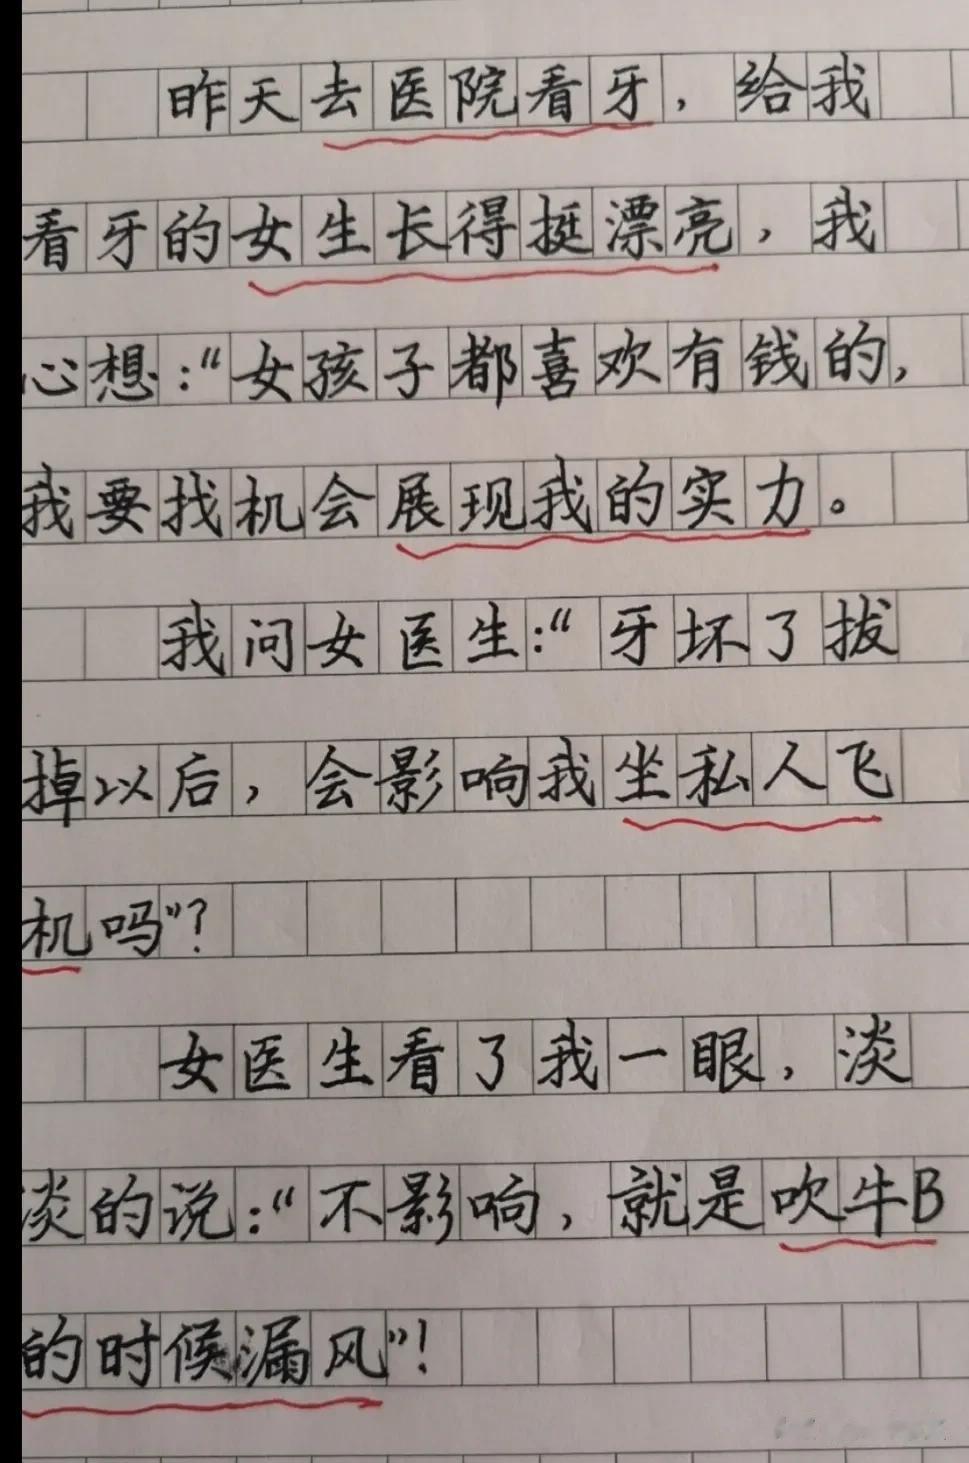 昨天去医院看牙，给我
看牙的女生长得挺漂亮，我
心想：“女孩子都喜欢有钱的，
我要找机会展现我的实力。
我问女医生：“牙坏了拔
掉以后，会影响我坐私人飞
机吗”？
女医生看了我一眼，淡
淡的说：“不影响，就是吹牛B
的时候漏风”！